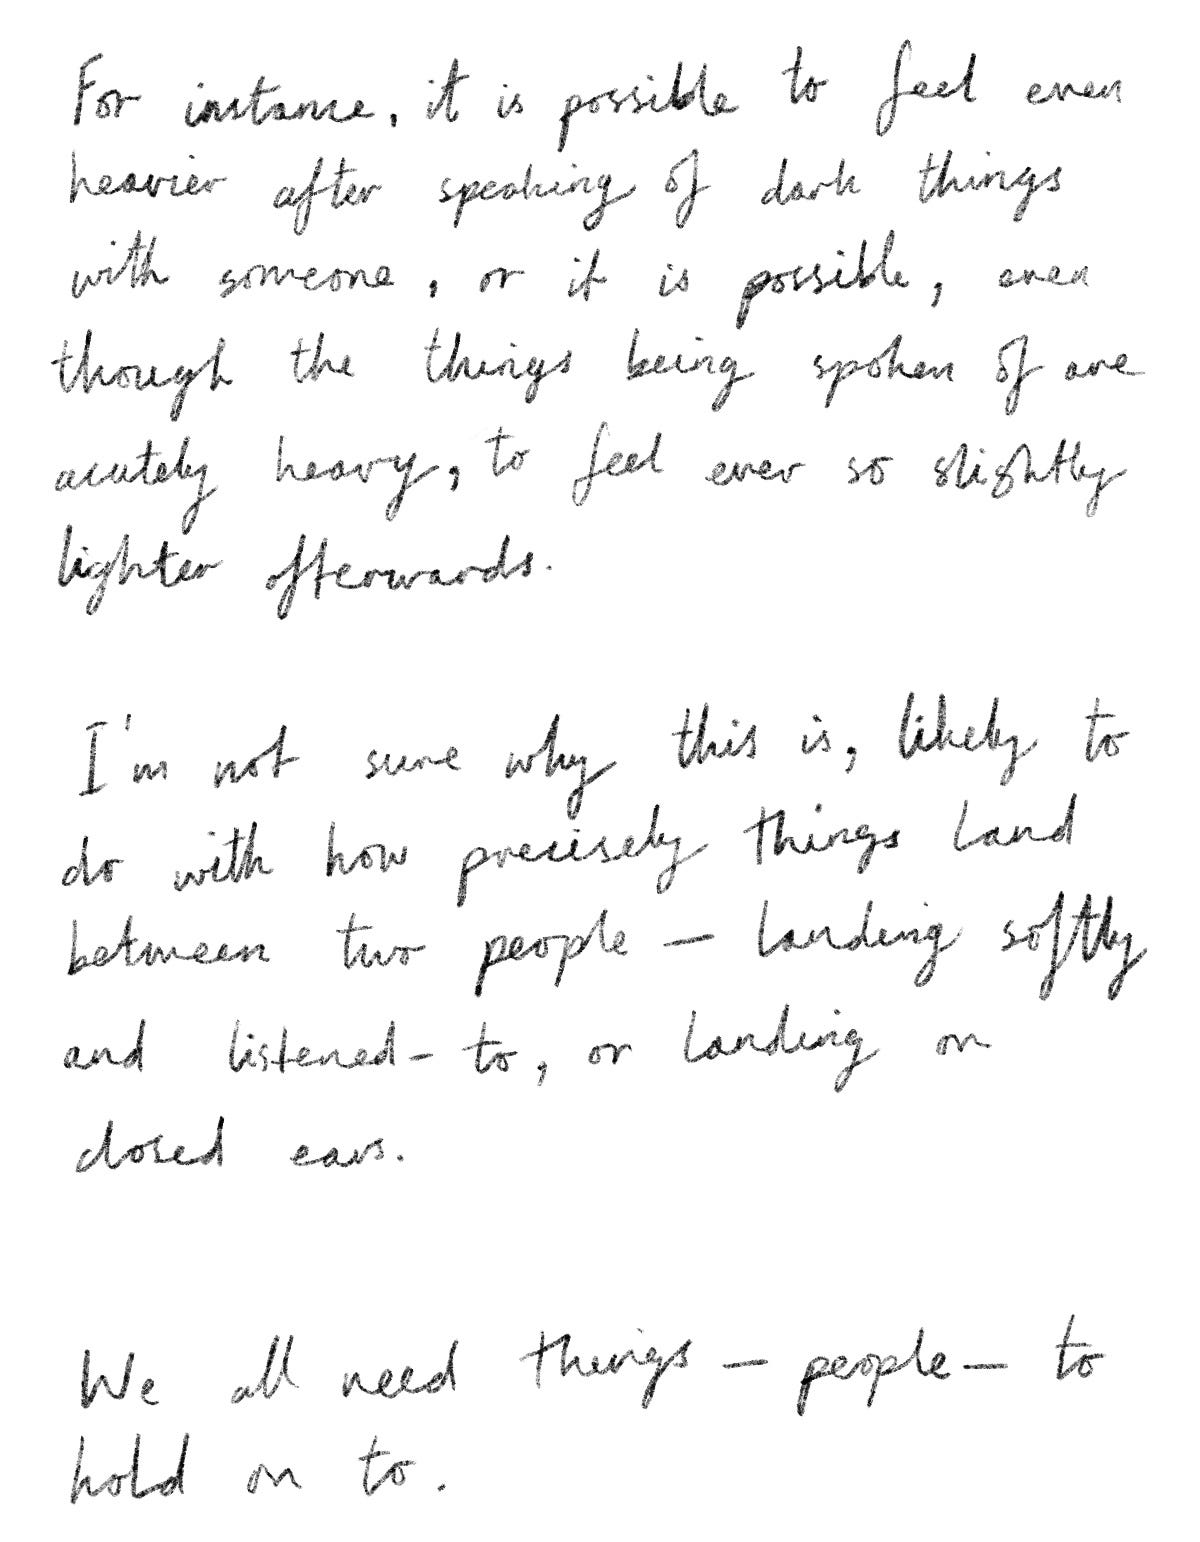 For instance, it is possible to feel even
heavier after speaking of dark things
with someone, or it is possible, even
though the things being spoken of are
acutely heavy, to feel ever so slightly
lighter afterwards.
I'm not sure why this is, likely to
do with how precisely things land
between two people — landing softly
and listened-to, or landing on
closed ears.
We all need things — people — to
hold on to.